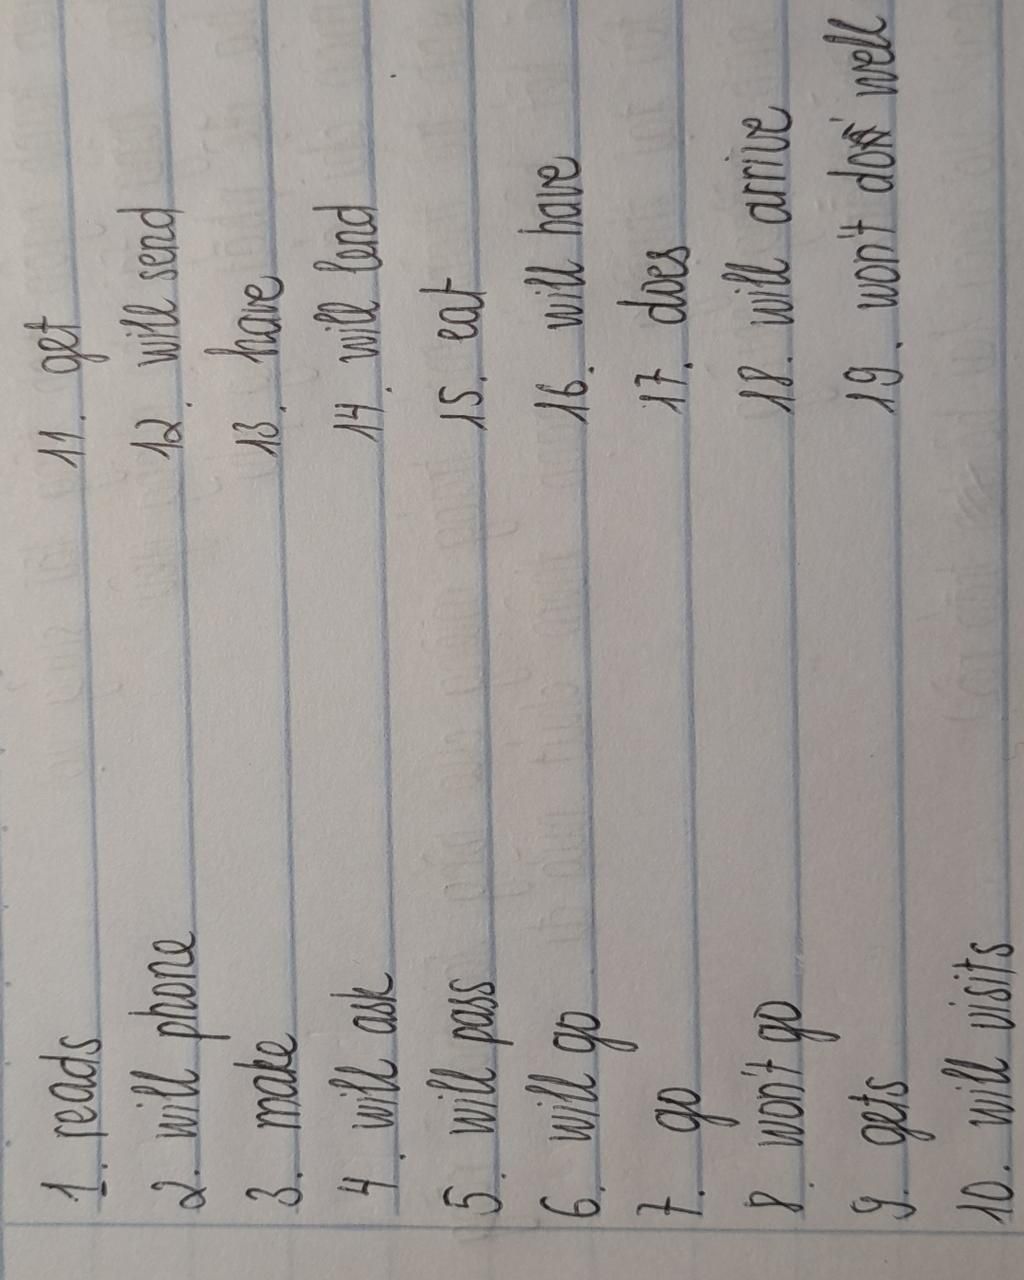 1. reads
2. will phone
3. make
4. will ask
5. will pass
6. will go
7. go
8. won't go
9. gets
10. will visits
11. get
12. will send
13. have
14. will lend
15. eat
16. will have
17. does
18. will arrive
19. won't do well